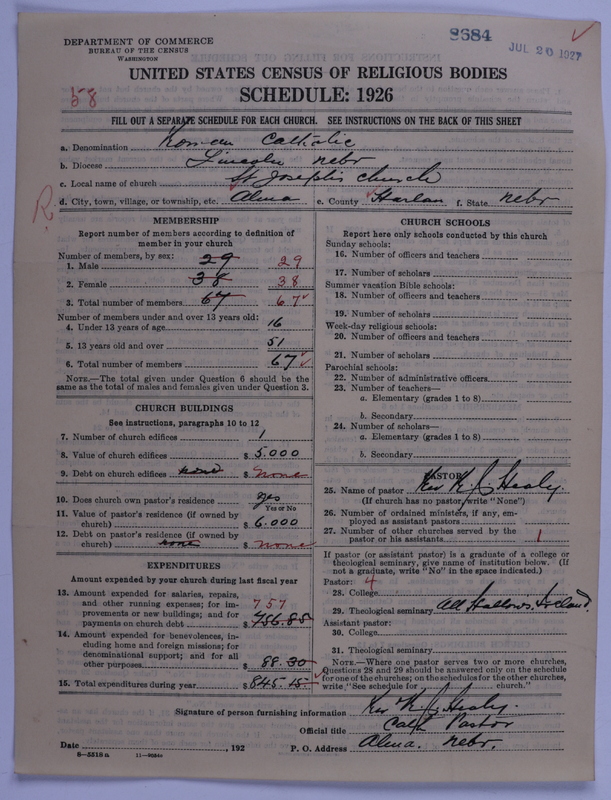 8684
JUL 20 1927
DEPARTMENT OF COMMERCE
BUREAU OF THE CENSUS
WASHINGTON
UNITED STATES CENSUS OF RELIGIOUS BODIES
SCHEDULE: 1926
58
FILL OUT A SEPARATE SCHEDULE FOR EACH CHURCH. SEE INSTRUCTIONS ON THE BACK OF THIS SHEET
a. Denomination Roman Catholic
b. Diocese Lincoln Nebr
c. Local name of church St Joseph's Church
R
d. City, town, village, or township, etc. Alma e. County Harlan f. State Nebr
MEMBERSHIP
Report number of members according to definition of
member in your church
Number of members, by sex:
1. Male 29 29
2. Female 38 38
3. Total number of members 67 67
Number of members under and over 13 years old:
4. Under 13 years of age 16
5. 13 years old and over 51
6. Total number of members 67
NOTE.—The total given under Question 6 should be the
same as the total of males and females given under Question 3.
CHURCH BUILDINGS
See instructions, paragraphs 10 to 12
7. Number of church edifices 1
8. Value of church edifices $ 5.000
9. Debt on church edifices none $ none
10. Does church own pastor's residence yes
Yes or No
11. Value of pastor's residence (if owned by
church) $ 6.000
12. Debt on pastor's residence (if owned by
church) none $ none
EXPENDITURES
Amount expended by your church during last fiscal year
13. Amount expended for salaries, repairs,
and other running expenses; for im-
provements or new buildings; and for
payments on church debt 757 $ 756.85
14. Amount expended for benevolences, in-
cluding home and foreign missions; for
denominational support; and for all
other purposes $ 88.30
15. Total expenditures during year $ 845.15
CHURCH SCHOOLS
Report here only schools conducted by this church
Sunday schools:
16. Number of officers and teachers
17. Number of scholars
Summer vacation Bible schools:
18. Number of officers and teachers
19. Number of scholars
Week-day religious schools:
20. Number of officers and teachers
21. Number of scholars
Parochial schools:
22. Number of administrative officers
23. Number of teachers—
a. Elementary (grades 1 to 8)
b. Secondary
24. Number of scholars—
a. Elementary (grades 1 to 8)
b. Secondary
PASTOR
25. Name of pastor Rev K. J. Healy
(If church has no pastor, write "None")
26. Number of ordained ministers, if any, em-
ployed as assistant pastors
27. Number of other churches served by the
pastor or his assistants 1
If pastor (or assistant pastor) is a graduate of a college or
theological seminary, give name of institution below. (If
not a graduate, write "No" in the space indicated.)
Pastor: 4
28. College
29. Theological seminary All Hallows Ireland.
Assistant pastor:
30. College
31. Theological seminary
NOTE.—Where one pastor serves two or more churches,
Questions 28 and 29 should be answered only on the schedule
for one of the churches; on the schedules for the other churches,
write "See schedule for church."
Signature of person furnishing information Rev K. J. Healy.
Official title Cath Pastor
Date , 192 P. O. Address Alma. Nebr.
8—5318a 11—9684